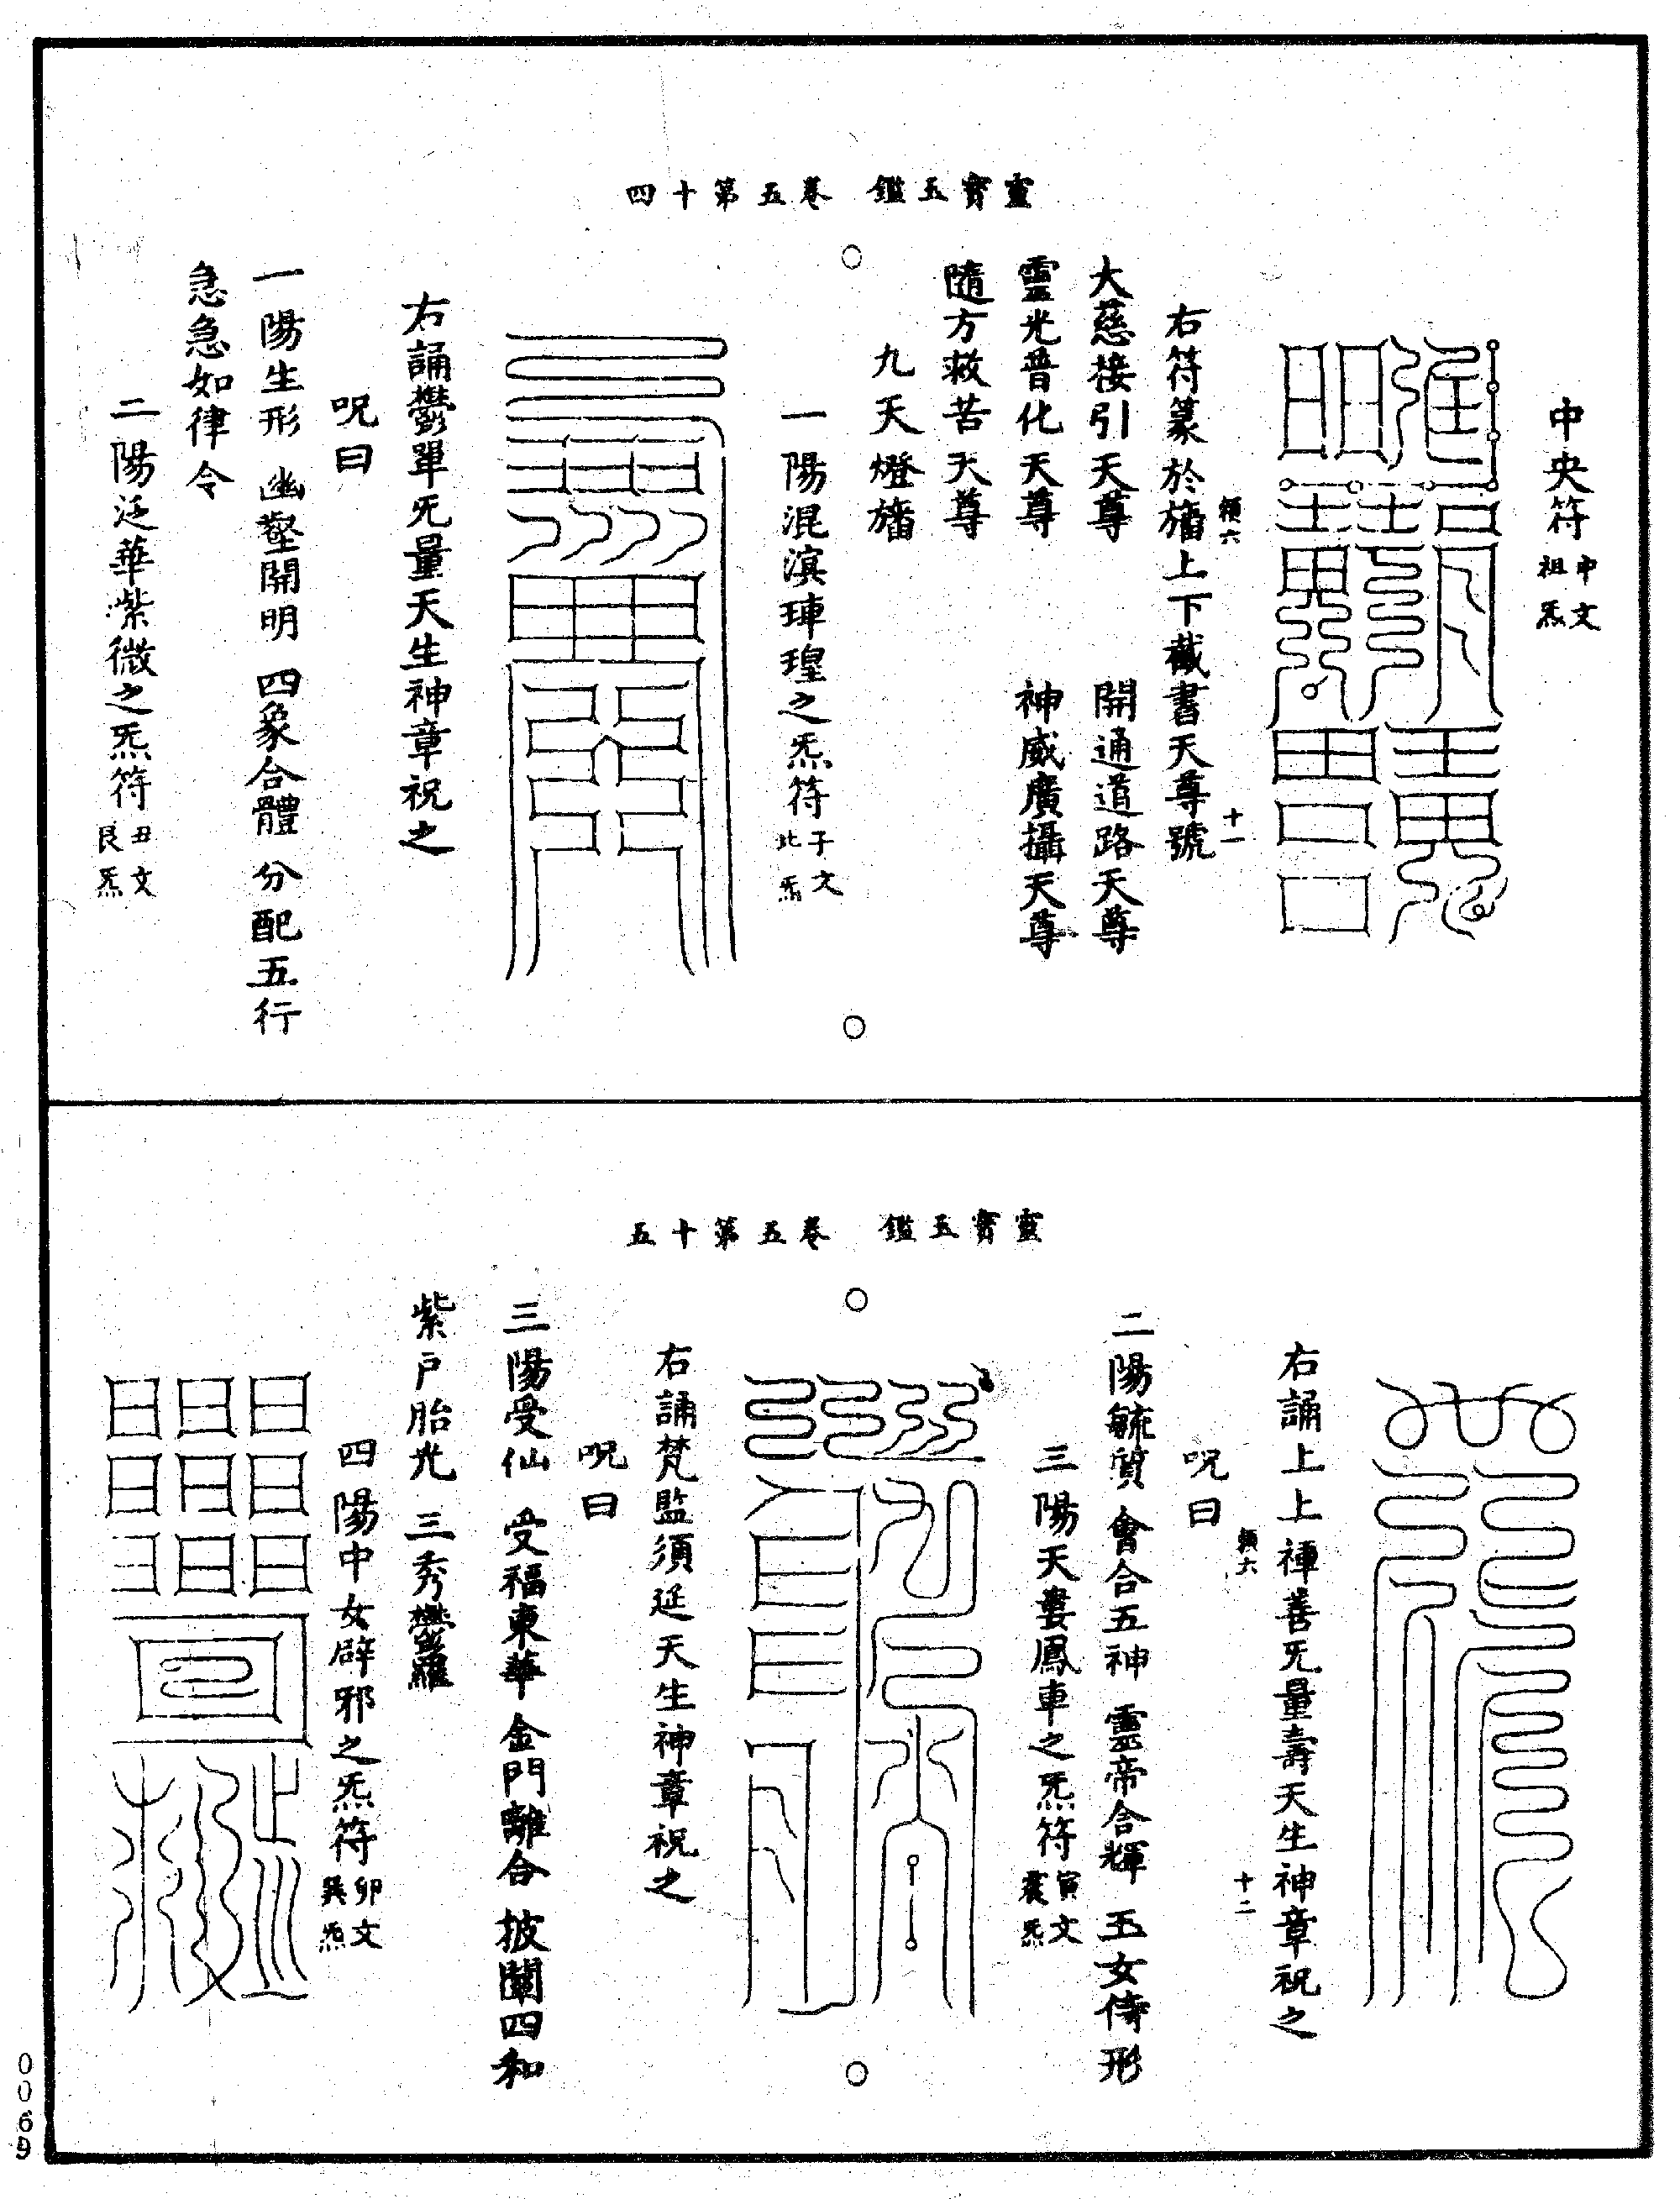 靈寶玉鑑 卷五第十四
中央符 中文祖炁
右符篆於旛上下截書天尊號
頻六
十一
大慈接引天尊 開通道路天尊
靈光普化天尊 神威廣攝天尊
隨方救苦天尊
九天燈旛
一陽混溟琿瑝之炁符 子文北炁
右誦鬱單无量天生神章祝之
呪曰
一陽生形 幽壑開明 四象合體 分配五行
急急如律令
二陽泛華紫微之炁符 丑文艮炁
靈寶玉鑑 卷五第十五
右誦上上禪善无量壽天生神章祝之
頻六
十二
呪曰
二陽毓質 會合五神 靈帝合輝 玉女侍形
三陽天婁鳳車之炁符 寅文震炁
右誦梵監須延天生神章祝之
呪曰
三陽受仙 受福東華 金門離合 披闥四和
紫戶胎光 三秀鬱羅
四陽中女辟邪之炁符 卯文巽炁
0069